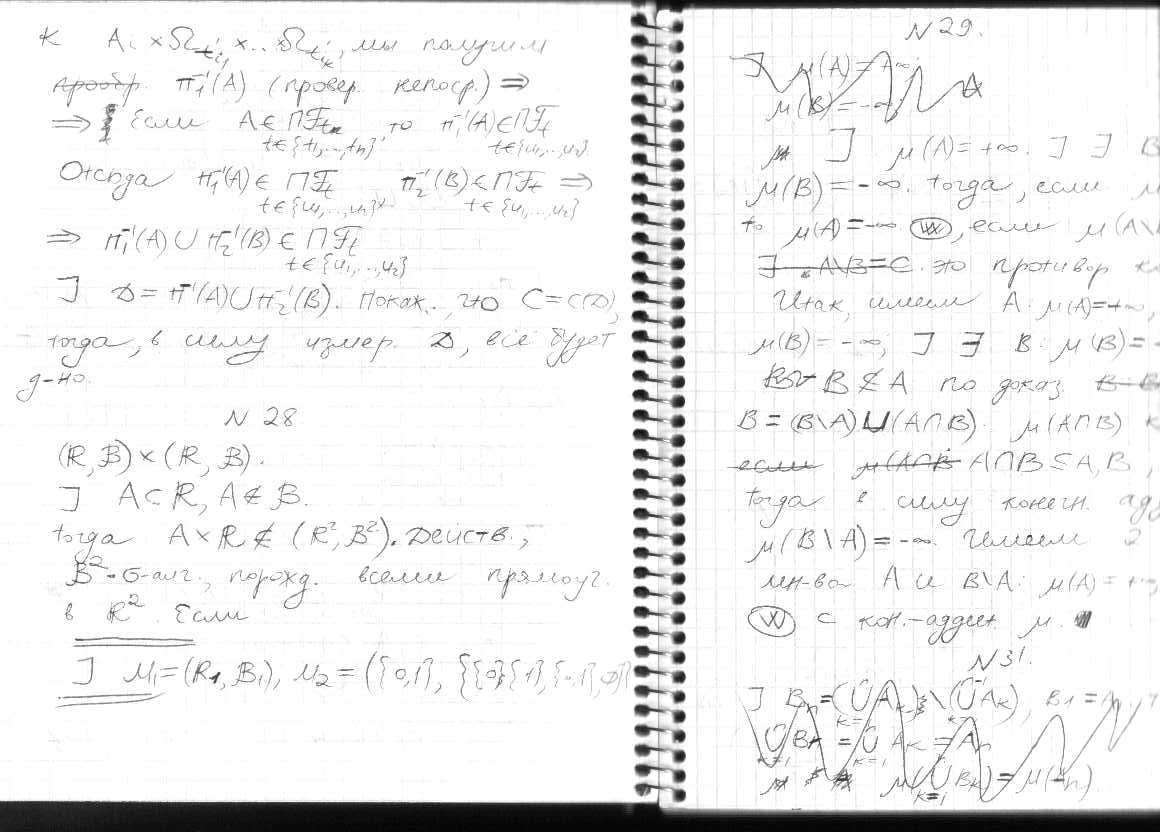 к A_i × Ω_{t'_{i_1}} × .. Ω_{t'_{i_k}}, мы получим
прообр. π_1^{-1}(A) (провер. непоср.) ⇒
⇒ Если A ∈ ΠF_t то π_1^{-1}(A) ∈ ΠF_t
t∈{t_1,..,t_n} t∈{u_1,..,u_z}
Отсюда π_1^{-1}(A) ∈ ΠF_t π_2^{-1}(B) ∈ ΠF_t ⇒
t∈{u_1,..,u_z} t∈{u_1,..,u_z}
⇒ π_1^{-1}(A) ∪ π_2^{-1}(B) ∈ ΠF_t
t∈{u_1,..,u_z}
] D = π_1^{-1}(A) ∪ π_2^{-1}(B). Покаж., что C = C(D),
тогда, в силу измер. D, всё будет
д-но.
N 28
(R, B) × (R, B).
] A ⊂ R, A ∉ B.
тогда A × R ∉ (R², B²). Действ.,
B² - σ-алг., порожд. всеми прямоуг.
в R². Если
] M_1 = (R_1, B_1), M_2 = ({0,1}, {{0}{1},{0,1},∅})
N 29.
] μ(A) = +∞
μ(B) = -∞
] μ(A) = +∞. ] ∃ B
μ(B) = -∞. тогда, если
то μ(A) = -∞ W, если μ(A\
] A\B = C. это против
Итак, имеем A: μ(A) = +∞,
μ(B) = -∞; ] ∃ B: μ(B) = -
B ⊄ A по доказ.
B = (B\A) ⊔ (A∩B). μ(A∩B)
если μ(A∩B A∩B ⊆ A, B,
тогда в силу конечн. адд
μ(B\A) = -∞. Имеем 2
мн-ва A и B\A: μ(A) = +∞,
W с кон.-аддит. μ.
N 31.
] B_n = (∪A_k) \ (∪A_k), B_1 = A
k=1 k=1
∪B_k = ∪A_k = A_n
k=1 k=1
μ(∪B_k) = μ(A_n)
k=1